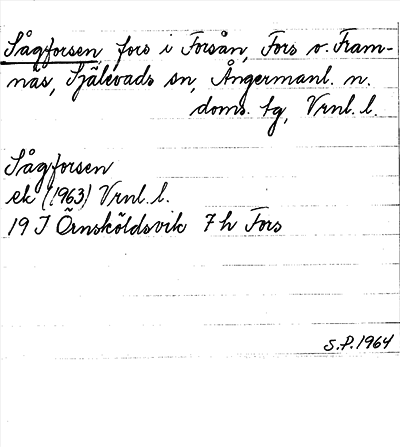 Sågforsen, fors i Forsån, Fors o. Fram-
näs, Själevads sn, Ångermanl. n.
doms. tg, Vrnl. l.
Sågforsen
ek (1963) Vrnl. l.
19 J Örnsköldsvik 7 h Fors
S.P. 1964